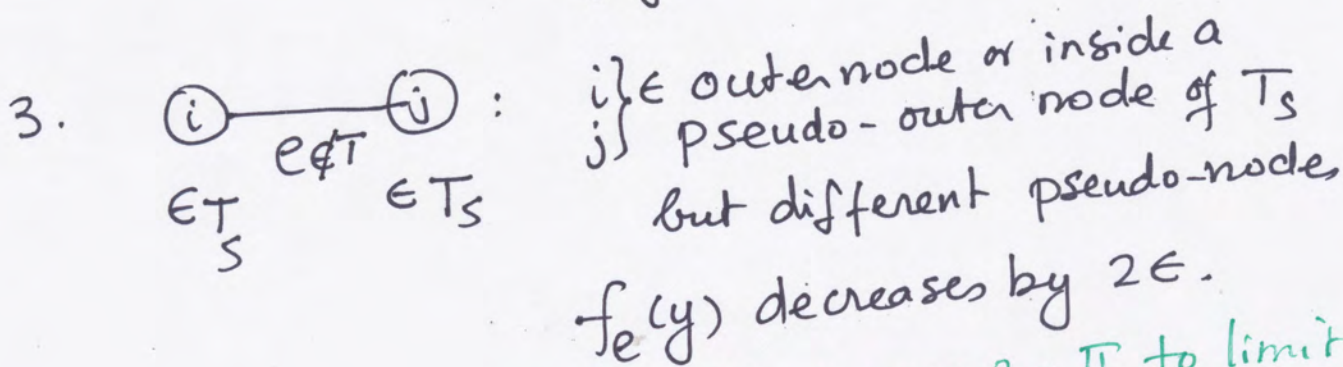 3. i j : i } ∈ outer node or inside a
e∉T j } pseudo-outer node of T_S
∈T_S ∈T_S but different pseudo-node,
f_e(y) decreases by 2ϵ.
to limit